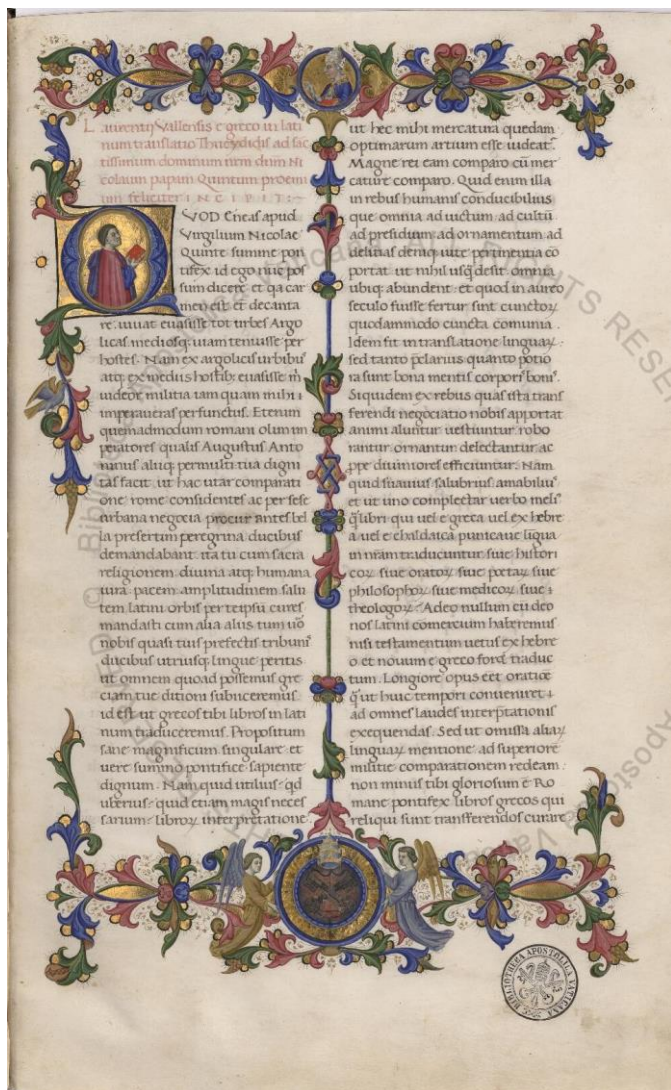 Laurentij Vallensis e greco in lati
num translatio Thucydidis ad sac
tissimum dominum nrm dnm Ni
colaum papam Quintum proemi
um feliciter INCIPIT:~
QVOD Eneas apud
Virgilium Nicolae
Quinte summe pon
tifex id ego nūc pos
sum dicere et qa car
men est et decanta
re. iuuat euasisse tot urbes Argo
licas mediosq; uiam tenuisse per
hostes. Nam ex argolicis urbibus
atq; ex mediis hostib; euasisse m̄
uideor militia tam quam mihi
imperaueras perfunctus. Etenim
quemadmodum romani olim im
peratores qualis Augustus Anto
ninus aliiq; permulti tua digni
tas facit ut hac utar comparati
one rome considentes ac per sese
urbana negocia procurantes bel
la presertim peregrina ducibus
demandabant. ita tu cum sacra
religionem diuina atq; humana
iura. pacem amplitudinem salu
tem latini orbis per teipsū cures
mandasti cum alia aliis tum uō
nobis quasi tuis prefectis tribunis
ducibus utriusq; lingue peritis
ut omnem quoad possemus gre
ciam tue ditioni subiiceremus.
id est ut grecos tibi libros in lati
num traduceremus. Propositum
sane magnificum singulare et
uere summo pontifice sapiente
dignum. Nam quid utilius qd
uberius. quid etiam magis neces
sarium. libroꝝ interpretatione
ut hec mihi mercatura quedam
optimarum artium esse uideat.
Magne rei eam comparo cū mer
cature comparo. Quid enim illa
in rebus humanis conducibilius
que omnia ad uictum ad cultū
ad presidium ad ornamentum ad
delicias deniq; uite pertinentia cō
portat ut nihil usq̄ desit omnia
ubiq; abundent. et quod in aureo
seculo fuisse fertur sint cunctoꝝ
quodammodo cuncta comunia.
Idem fit in translatione linguaꝝ
sed tanto p̄clarius quanto potio
ra sunt bona mentis corporis bonis.
Siquidem ex rebus quas ista trans
ferendi negociatio nobis apportat
animi aluntur uestiuntur robo
rantur ornantur delectantur ac
ppe diuiniores efficiuntur. Nam
quid suauius salubrius amabilius
et ut uno complectar uerbo melius
q̄ libri qui uel e greca uel ex hebre
a uel e chaldaica punicaue ligua
in nram traducuntur siue histori
coꝝ siue oratoꝝ siue poetaꝝ siue
philosophoꝝ siue medicoꝝ siue
theologoꝝ. Adeo nullum cū deo
nos latini comercium haberemus
nisi testamentum uetus ex hebre
o et nouum e greco foret traduc
tum. Longiore opus eēt oratiōe
q̄ ut huic tempori conueniret
ad omnes laudes interp̄tationis
exequendas. Sed ut omissa aliaꝝ
linguaꝝ mentione ad superiorē
militie comparationem redeam.
non minus tibi gloriosum ē Ro
mane pontifex libros grecos qui
reliqui sunt transferendos curare
BIBLIOTHECA APOSTOLICA VATICANA